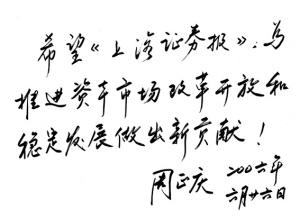 希望《上海证券报》,为
推进资本市场改革开放和
稳定发展做出新贡献!
周正庆 二00六年
六月廿六日